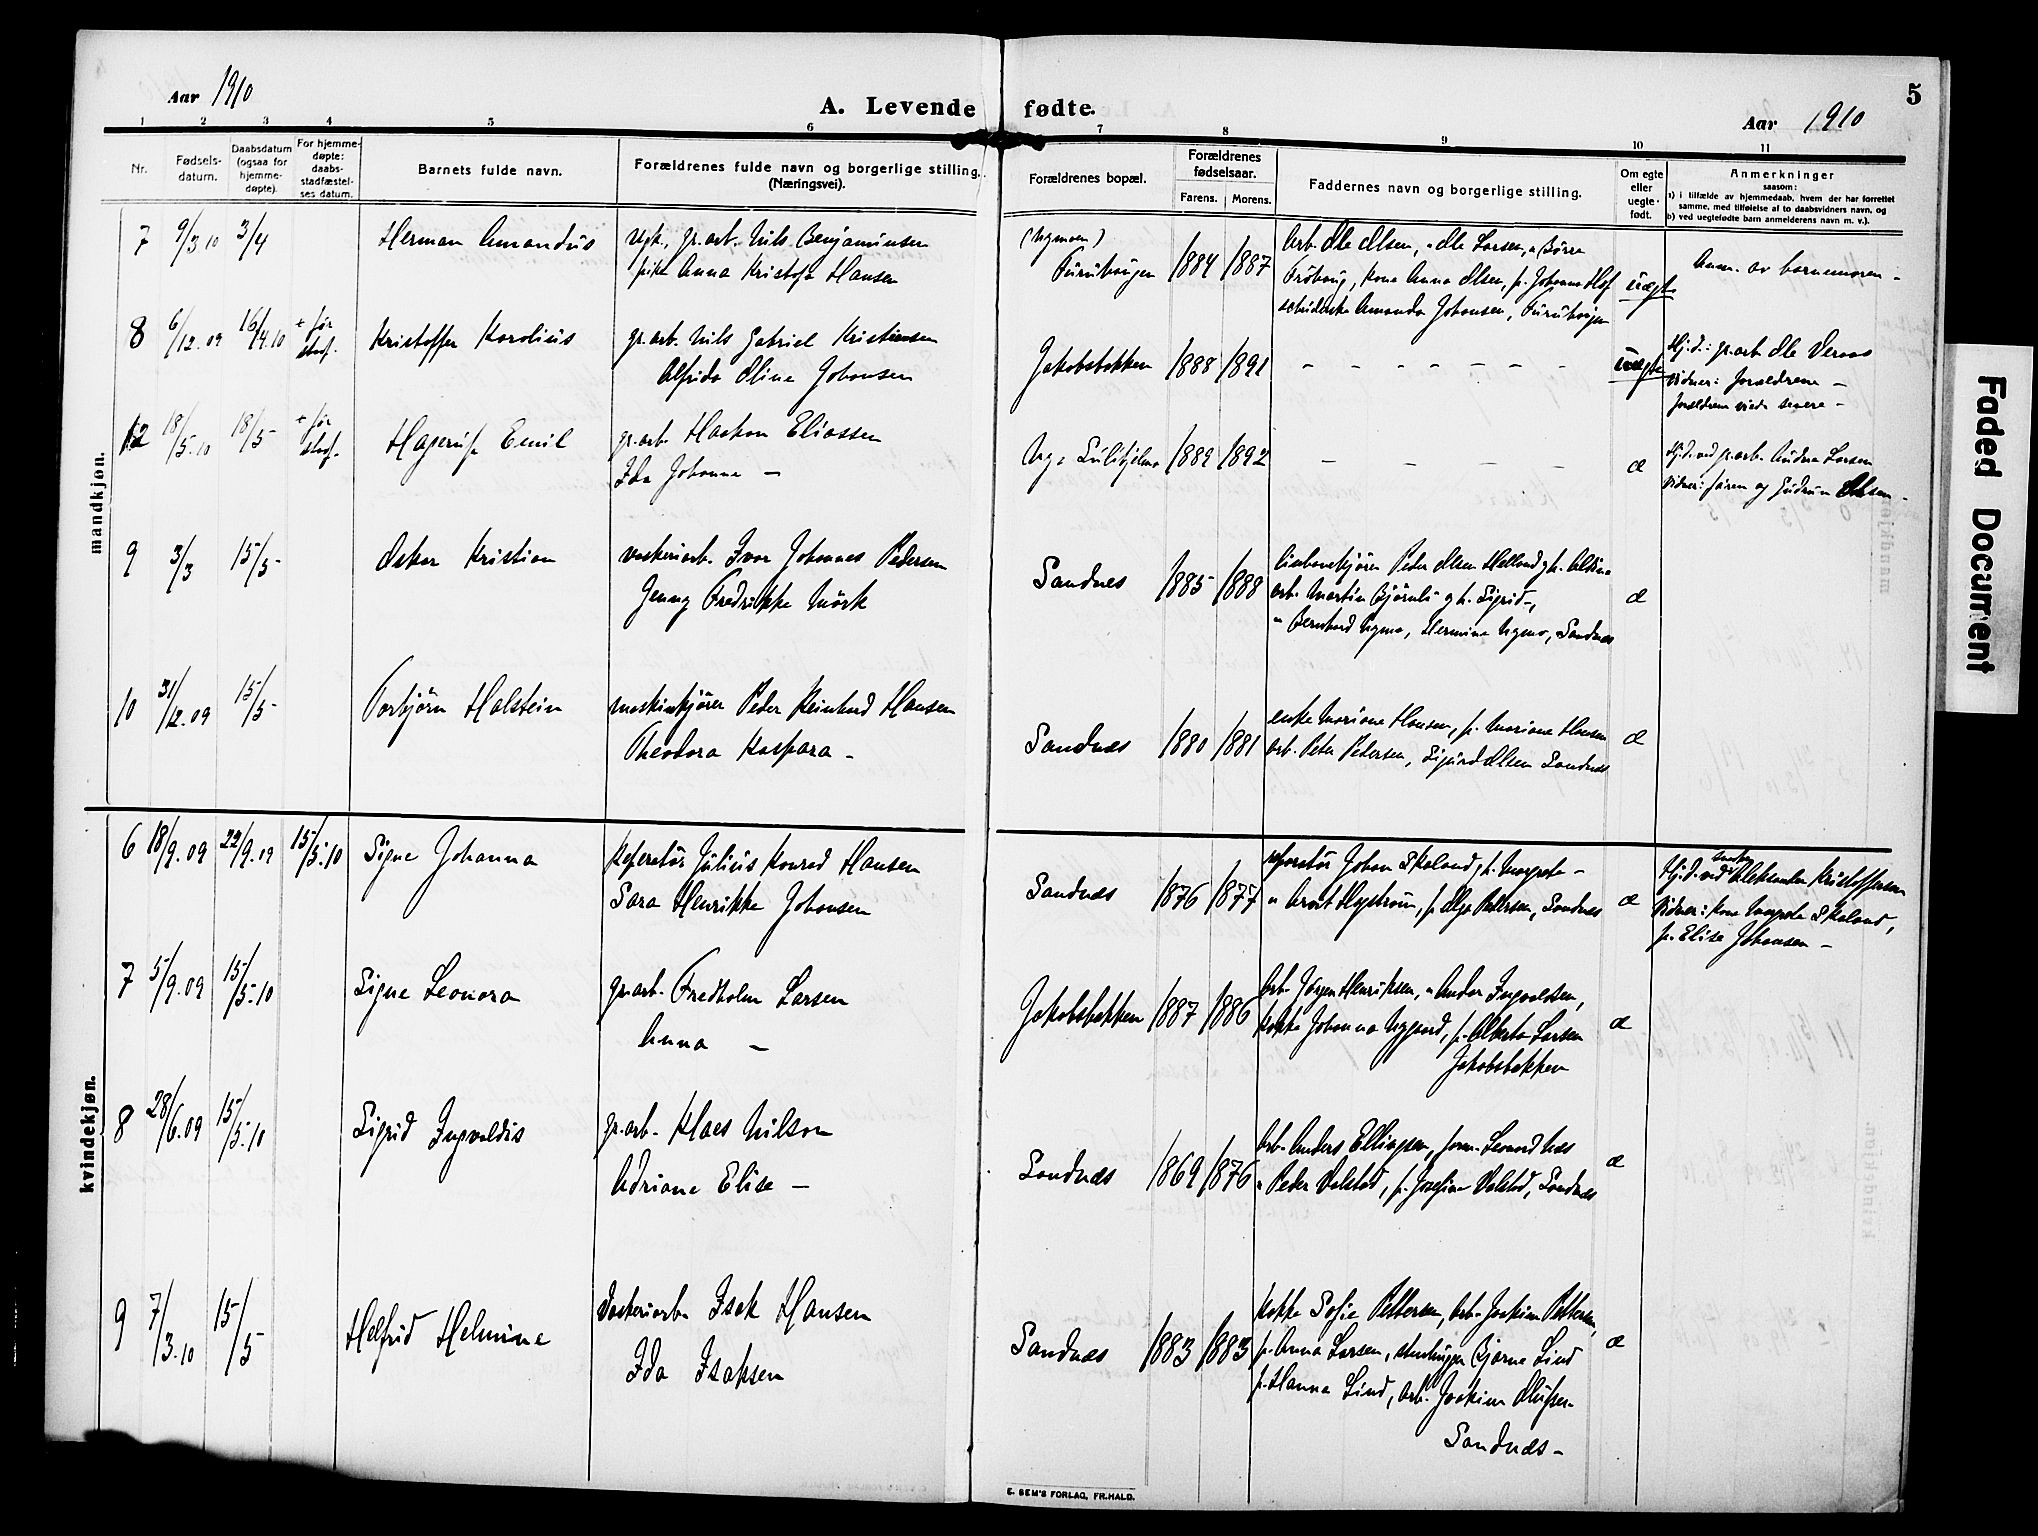 Aar 1910
A. Levende fødte.
Aar 1910
5
1 2 3 4 5 6 7 8 9 10 11
Nr.
Fødsels-
datum.
Daabsdatum
(ogsaa for
hjemme-
døpte).
For hjemme-
døpte:
daabs-
stadfæstel-
ses datum.
Barnets fulde navn.
Forældrenes fulde navn og borgerlige stilling.
(Næringsvei).
Forældrenes bopæl.
Forældrenes
fødselsaar.
Farens. Morens.
Faddernes navn og borgerlige stilling.
Om egte
eller
uegte-
født.
Anmerkninger
saasom:
a) i tilfælde av hjemmedaab, hvem der har forrettet
samme, med tilføielse af to daabsvidners navn, og
b) ved uegtefødte barn anmelderens navn m. v.).
mandkjøn.
7 9/3 10 3/4 Herman Amandus
ugk. gr.arb. Nils Benjaminsen
pike Anna Kristofa Hansen
(Nymoen)
Furuhaugen 1884 1887
Arb. Ole Olsen, " Ole Larsen, " Børre
Frøhaug, kone Anna Olsen, p. Johanna Olsf
Amanda Johansen, Furuhaugen
uægte
Anm. av barnemoren -
8 6/12.09 16/4.10 + før stadf. Kristoffer Karolius
gr.arb. Nils Gabriel Kristiansen
Alfrida Oline Johansen
Jakobsbakken 1888 1891 - - - - - - -
uægte
Hj.d.: gr.arb. Ole Veraas
vidner: forældrene -
forældrene viede senere -
12 18/5.10 18/5- + før stadf. Hagerup Emil
gr.arb. Haakon Eliassen
Ida Johanna -
Ny-Sulitjelma 1889 1892 - - - -
æ
Hj.d. ved gr.arb. Andreas Larsen
vidner: faren og Gudrun Olsen -
9 3/3 15/5- Oskar Kristian
vaskeriarb. Ivar Johannes Pedersen
Jenny Fredrikke Mørk
Sandnes 1885 1888
Peder Olsen Helland g h. Alvine
arb. Martin Bjørnli g h. Sigrid -,
" Bernhard Nymo, Hermine Nymo, Sandnes
æ
10 31/12.09 15/5- Torbjørn Halstein
maskinkjører Peder Reinhard Hansen
Theodora Kaspara -
Sandnæs 1880 1881
enke Mariane Hansen, p. Mariane Hansen
arb. Peter Petersen, Sigurd Olsen Sandnæs
æ
kvindekjøn.
6 18/9.09 22/9.09 15/5.10 Signe Johanna
Reparatør Julius Konrad Hansen
Sara Henrikke Johansen
Sandnæs 1876 1877
reparatør Johan Skaland g h. Margrete -
" Arnt Nystrøm, p. Olga Pettersen, Sandnæs
æ
Hj.d. ved Aleksander Kristoffersen
Vidner: kone Margrete Skaland,
p. Elise Johansen -
7 5/9.09 15/5.10 Signe Leonora
gr.arb. Fredholm Larsen
Anna -
Jakobsbakken 1887 1886
Arb. Jørgen Henriksen, " Andor Ingvaldsen,
kokke Johanna Nygaard, p. Alberta Larsen
Jakobsbakken
æ
8 28/6.09 15/5.10 Sigrid Ingvaldis
gr.arb. Klaes Nilsen
Adriane Elise -
Sandnæs 1869 1876
Arb. Anders Ellingsen, form. Leonard Næs
" Peder Valstad, p. Josefine Valstad, Sandnæs
æ
9 7/3.10 15/5 Helfrid Helmine
Vaskeriarb. Isak Hansen
Ida Isaksen
Sandnæs 1883 1883
kokke Sofie Pettersen, Arb. Joakim Pettersen,
p. Anna Larsen, Bjarne Lind
p. Hanna Lind, Arb. Joakim Olufsen
Sandnæs -
æ
E. SEM'S FORLAG, FR.HALD.
Faded Document